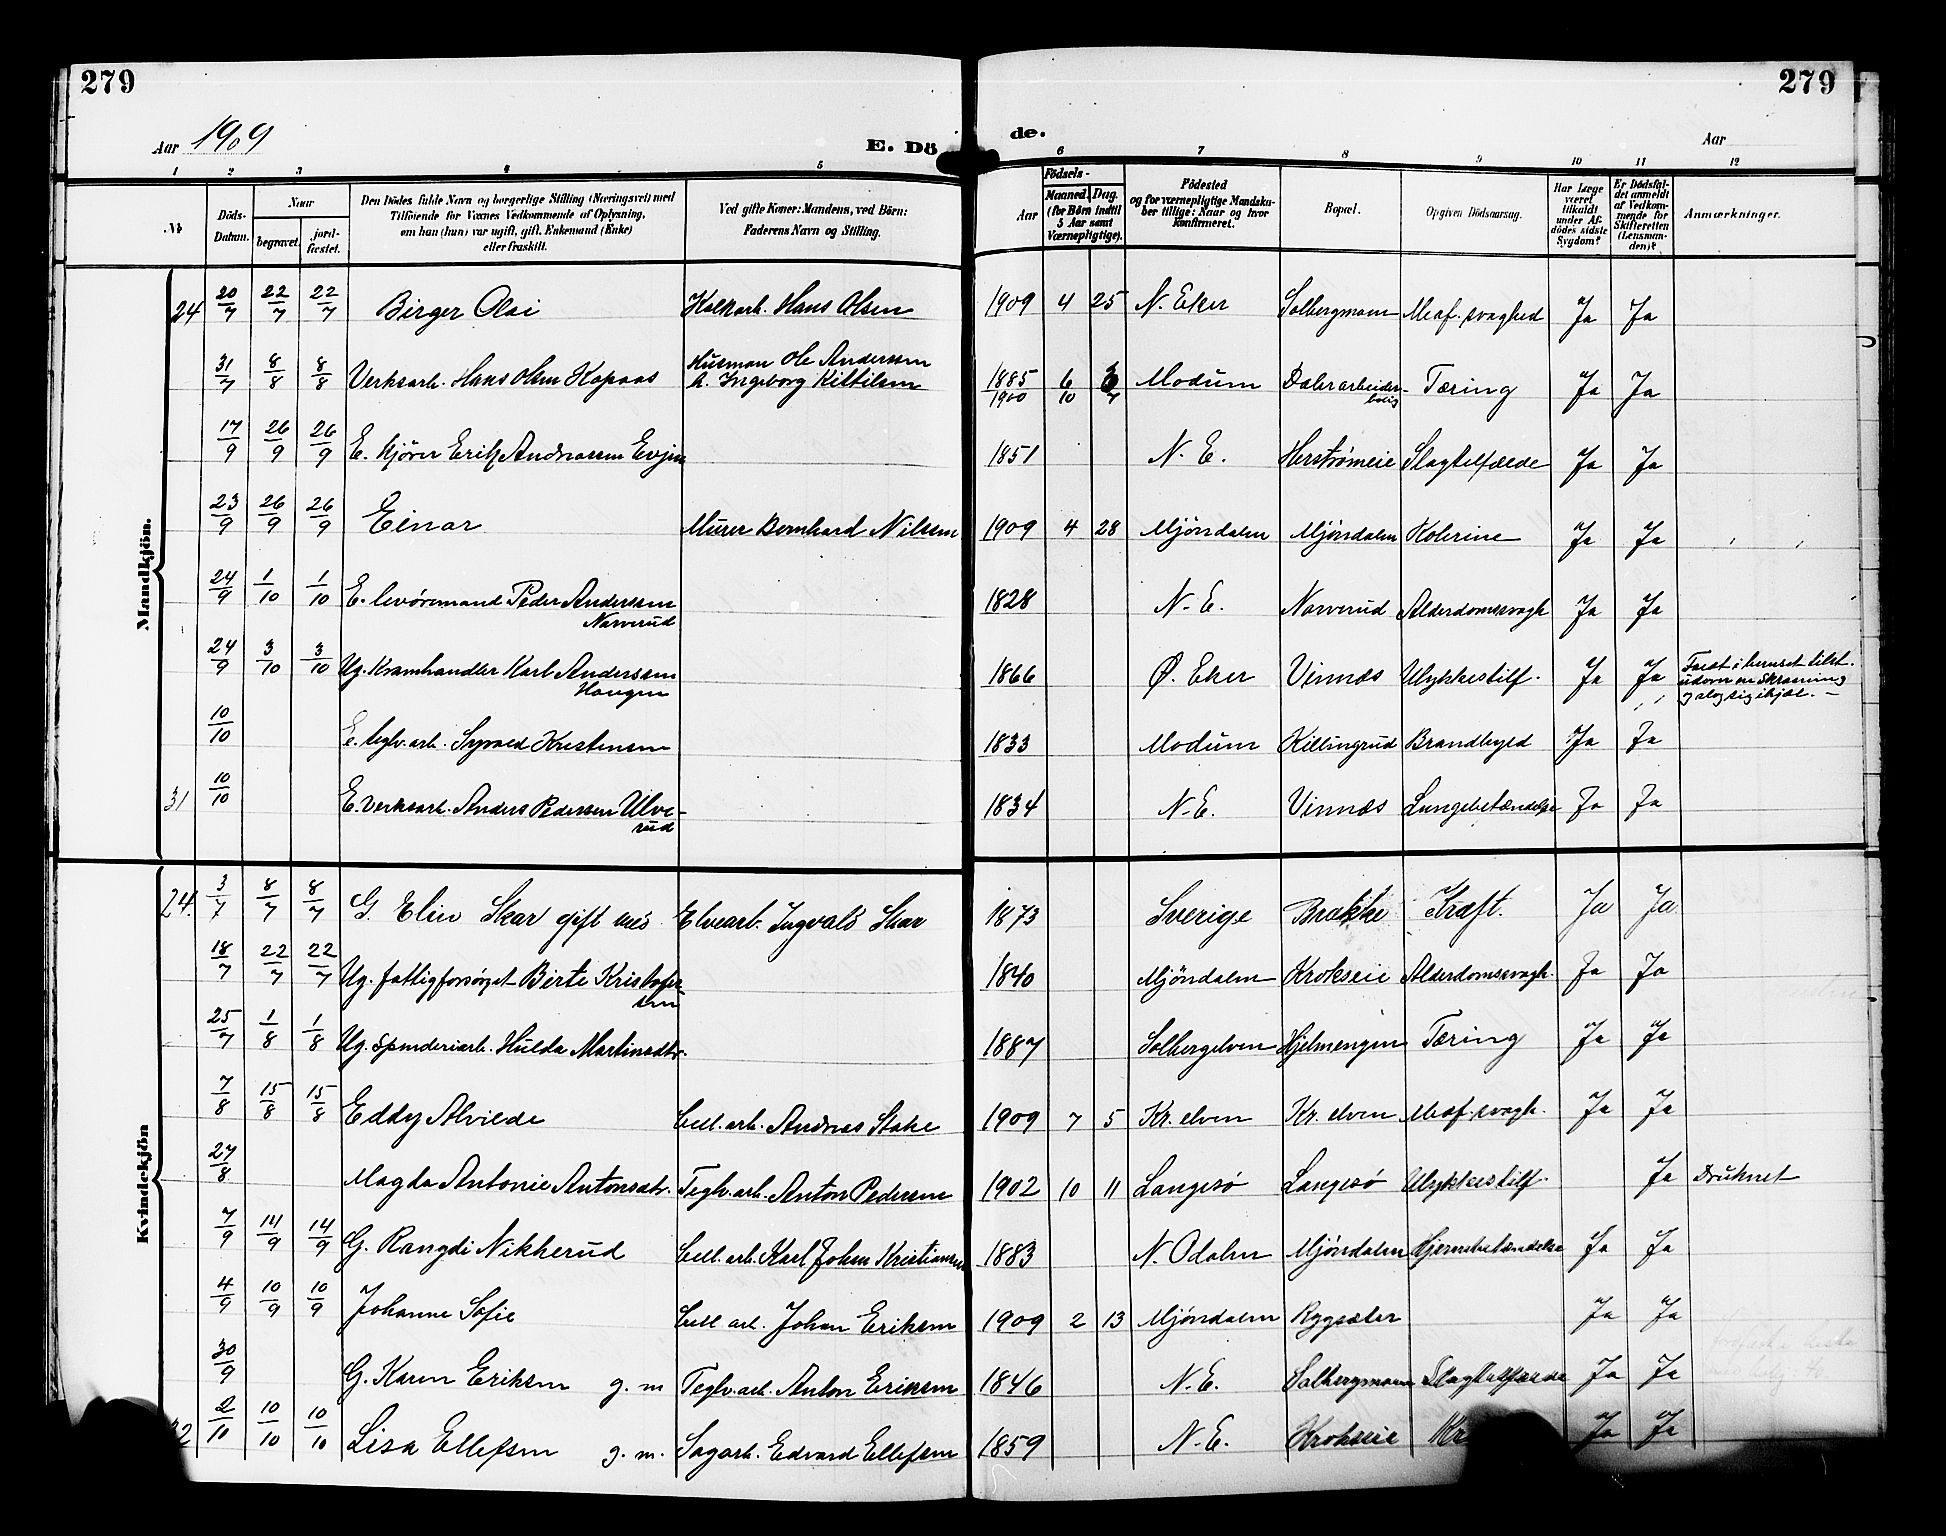 279
279
Aar 1909
E. Dö
de.
Aar
1 2 3 4 5 6 7 8 9 10 11 12
№
Döds-Datum.
Naar
begravet.
jord-fæstet.
Den Dödes fulde Navn og borgerlige Stilling (Næringsvei) med
Tilföiende for Voxnes Vedkommende af Oplysning,
om han (hun) var ugift, gift, Enkemand (Enke)
eller fraskilt.
Ved gifte Koner: Mandens, ved Börn:
Faderens Navn og Stilling.
Födsels-
Aar
Maaned. Dag.
(for Börn indtil
5 Aar samt
Værnepligtige).
Födested
og for værnepligtige Mandska-
ber tillige: Naar og hvor
konfirmeret.
Bopæl.
Opgiven Dödsaarsag.
Har Læge
været
tilkaldt
under Af-
dödes sidste
Sygdom?
Er Dödsfal-
det anmeldt
af Vedkom-
mende for
Skifteretten
(Lensman-
den)?
Anmærkninger.
Mandkjön.
24 20/7 22/7 22/7 Birger Olai Kalkarb. Hans Olsen 1909 4 25 N. Eker Solbergmoen Meaf. svaghed Ja Ja
31/7 8/8 8/8 Verksarb. Hans Olsen Kopaas Husman Ole Anderssen
h. Ingeborg Kittilsen 1885/1900 6/10 6/7 Modum Daler arbeider-
bolig Tæring Ja Ja
17/9 26/9 26/9 E. Kjörer Erik Andreassen Evjen 1851 N. E. Herstrømeie Slagtilfælde Ja Ja
23/9 26/9 26/9 Einar Murer Bernhard Nilssen 1909 4 28 Mjöndalen Mjöndalen Kolerine Ja Ja
24/9 1/10 1/10 E. Peder Anderssen
Narverud 1828 N. E. Narverud Alderdomssvagh. Ja Ja
24/9 3/10 3/10 Ug. Kramhandler Karl Anderssen
Haugen 1866 Ø. Eker Vinnæs Ulykkestilf. Ja Ja Faldt i beruset tilst.
udover en Skraaning
og slog sig ihjæl. –
10/10 E. teglv. arb. Syvald Kristensen 1833 Modum Killingrud Brandbyld Ja Ja
31 10/10 E. Verksarb. Anders Pedersen Ulve-
rud 1834 N. E. Vinnæs Lungebetændelse Ja Ja
Kvindekjön
24. 3/7 8/7 8/7 G. Elin Skar gift med Elvearb. Ingvald Skar 1873 Sverige Brakke Kræft. Ja Ja
18/7 22/7 22/7 Ug. fattigforsörget Birte Kristofer-
sen 1840 Mjöndalen Krokseie Alderdomssvagh. Ja Ja
25/7 1/8 1/8 Ug. Spinderiarb. Hulda Martinsdtr. 1887 Solbergelven Hjelmengen Tæring Ja Ja
7/8 15/8 15/8 Eddy Alvilde Cell. arb. Andreas Stake 1909 7 5 Kr. elven Kr. elven Meaf. svagh. Ja Ja
27/8 Magda Antonie Antonsdtr. Teglv. arb. Anton Pedersen 1902 10 11 Langesö Langesö Ulykkestilf. Ja Druknet
7/9 14/9 14/9 G. Rangdi Nikkerud Cell. arb. Karl Johan Kristiansen 1883 N. Odalen Mjöndalen Hjernebetændelse Ja Ja
4/9 10/9 10/9 Johanne Sofie Cell. arb. Johan Eriksen 1909 2 13 Mjöndalen Rygsæter Ja Ja
30/9 G. Karen Eriksen g. m. Teglv. arb. Anton Eriksen 1846 N. E. Solbergmoen Slagtilfælde Ja Ja
2/10 10/10 10/10 Lisa Ellefsen g. m. Sagarb. Edvard Ellefsen 1859 N. E. Krokseie Kr Ja Ja